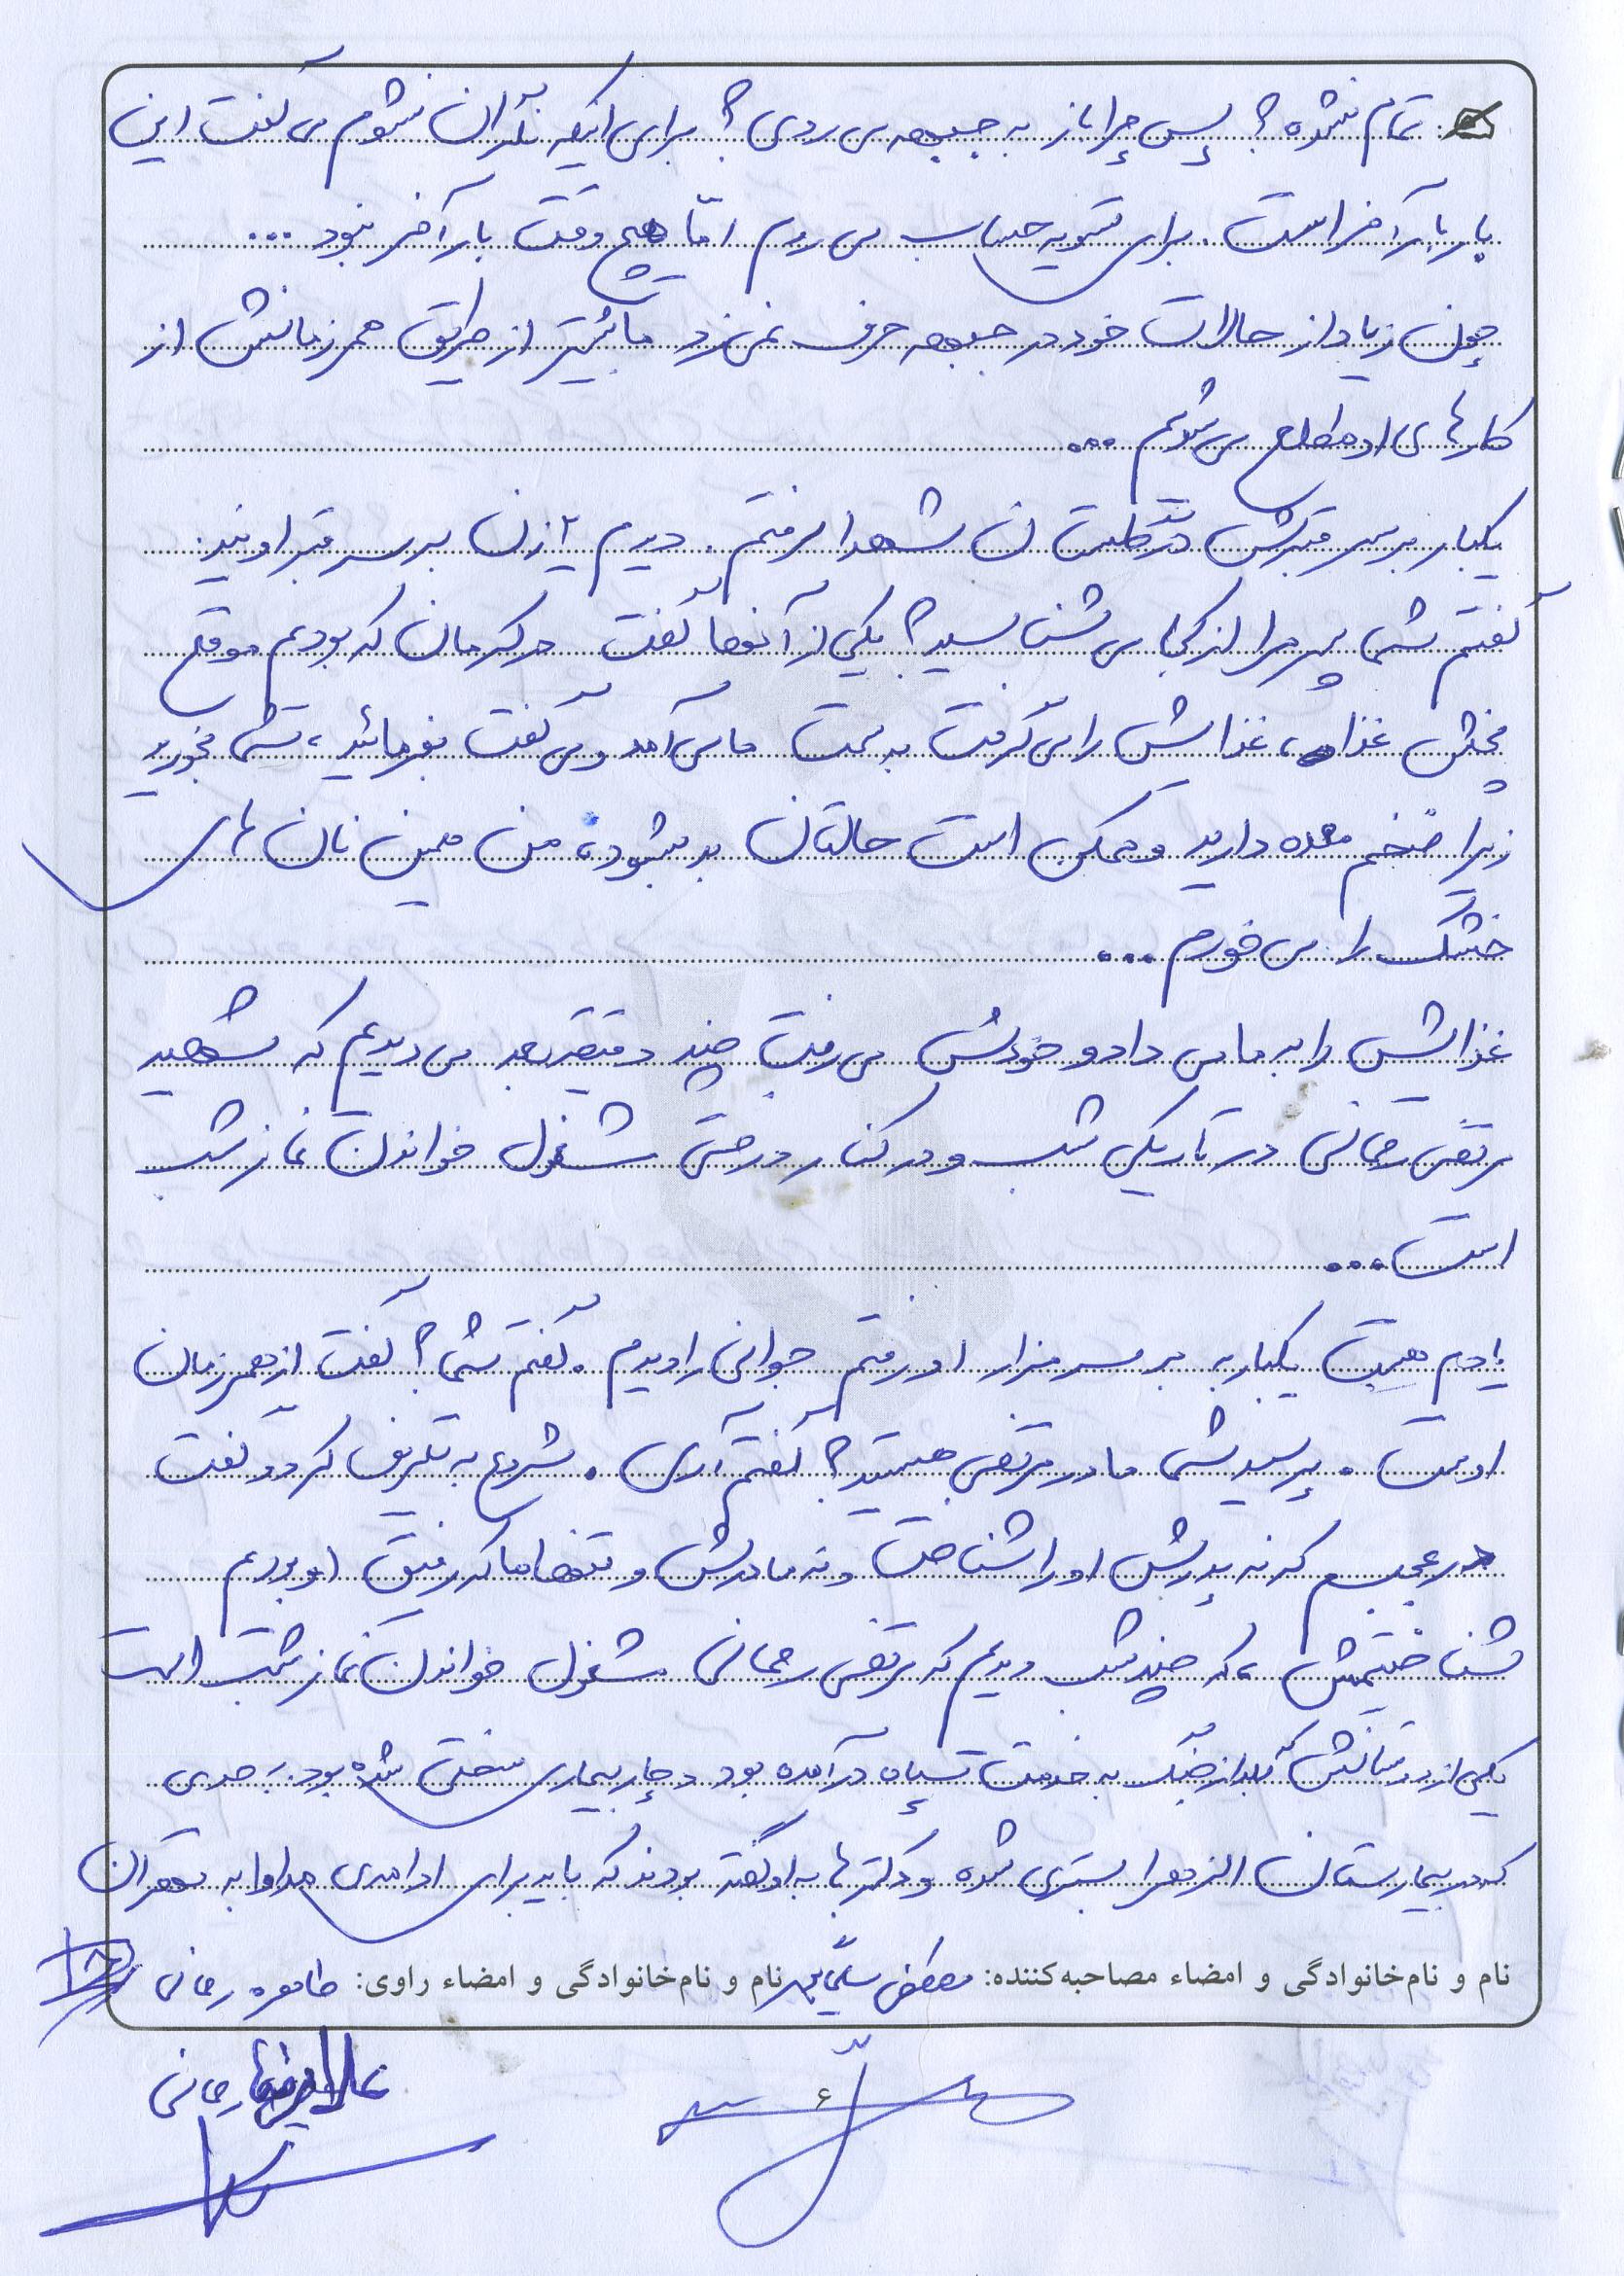 تمام نشده؟ پس چرا باز به جبهه می روی؟ برای اینکه نگران نشوم می گفت این
بار بار آخر است. برای تسویه حساب می روم اما هیچ وقت بار آخر نبود ...
چون زیاد از حالات خود در جبهه حرف نمی زد ما بیشتر از طریق همرزمانش از
کارهای او مطلع می شویم ...
یکبار بر سر قبرش در گلستان شهدا رفتم. دیدم ۲ زن بر سر قبر اویند.
گفتم شما پسر مرا از کجا می شناسید؟ یکی از آنها گفت در کرمان که بودیم موقع
پخش غذا، غذایش را می گرفت به سمت ما می آمد و می گفت بفرمائید، شما بخورید
زیرا زخم معده دارید و ممکن است حالتان بد بشود، من همین نان های
خشک را می خورم ...
غذایش را به ما می داد و خودش می رفت چند دقیقه بعد می دیدیم که شهید
مرتضی رحمانی در تاریکی شب و در کنار درختی مشغول خواندن نماز شب
است ...
یادم هست یکبار به بر سر مزار او رفتم جوانی را دیدم. گفتم شما؟ گفت از همرزمان
اوست. پرسید شما مادر مرتضی هستید؟ گفتم آری. شروع به تعریف کرد و گفت
در عجبم که نه پدرش او را شناخت و نه مادرش و تنها ما که رفیق او بودیم
شناختیمش، که چند شب دیدیم که مرتضی رحمانی مشغول خواندن نماز شب است
یکی از دوستانش که بعد از جنگ به خدمت سپاه در آمده بود دچار بیماری سختی شده بود. به حدی
که در بیمارستان الزهرا بستری شده و دکترها به او گفته بودند که باید برای ادامه‌ی مداوا به تهران
نام و نام‌خانوادگی و امضاء مصاحبه‌کننده: مصطفی نام و نام‌خانوادگی و امضاء راوی: طاهره رحمانی
رحمانی